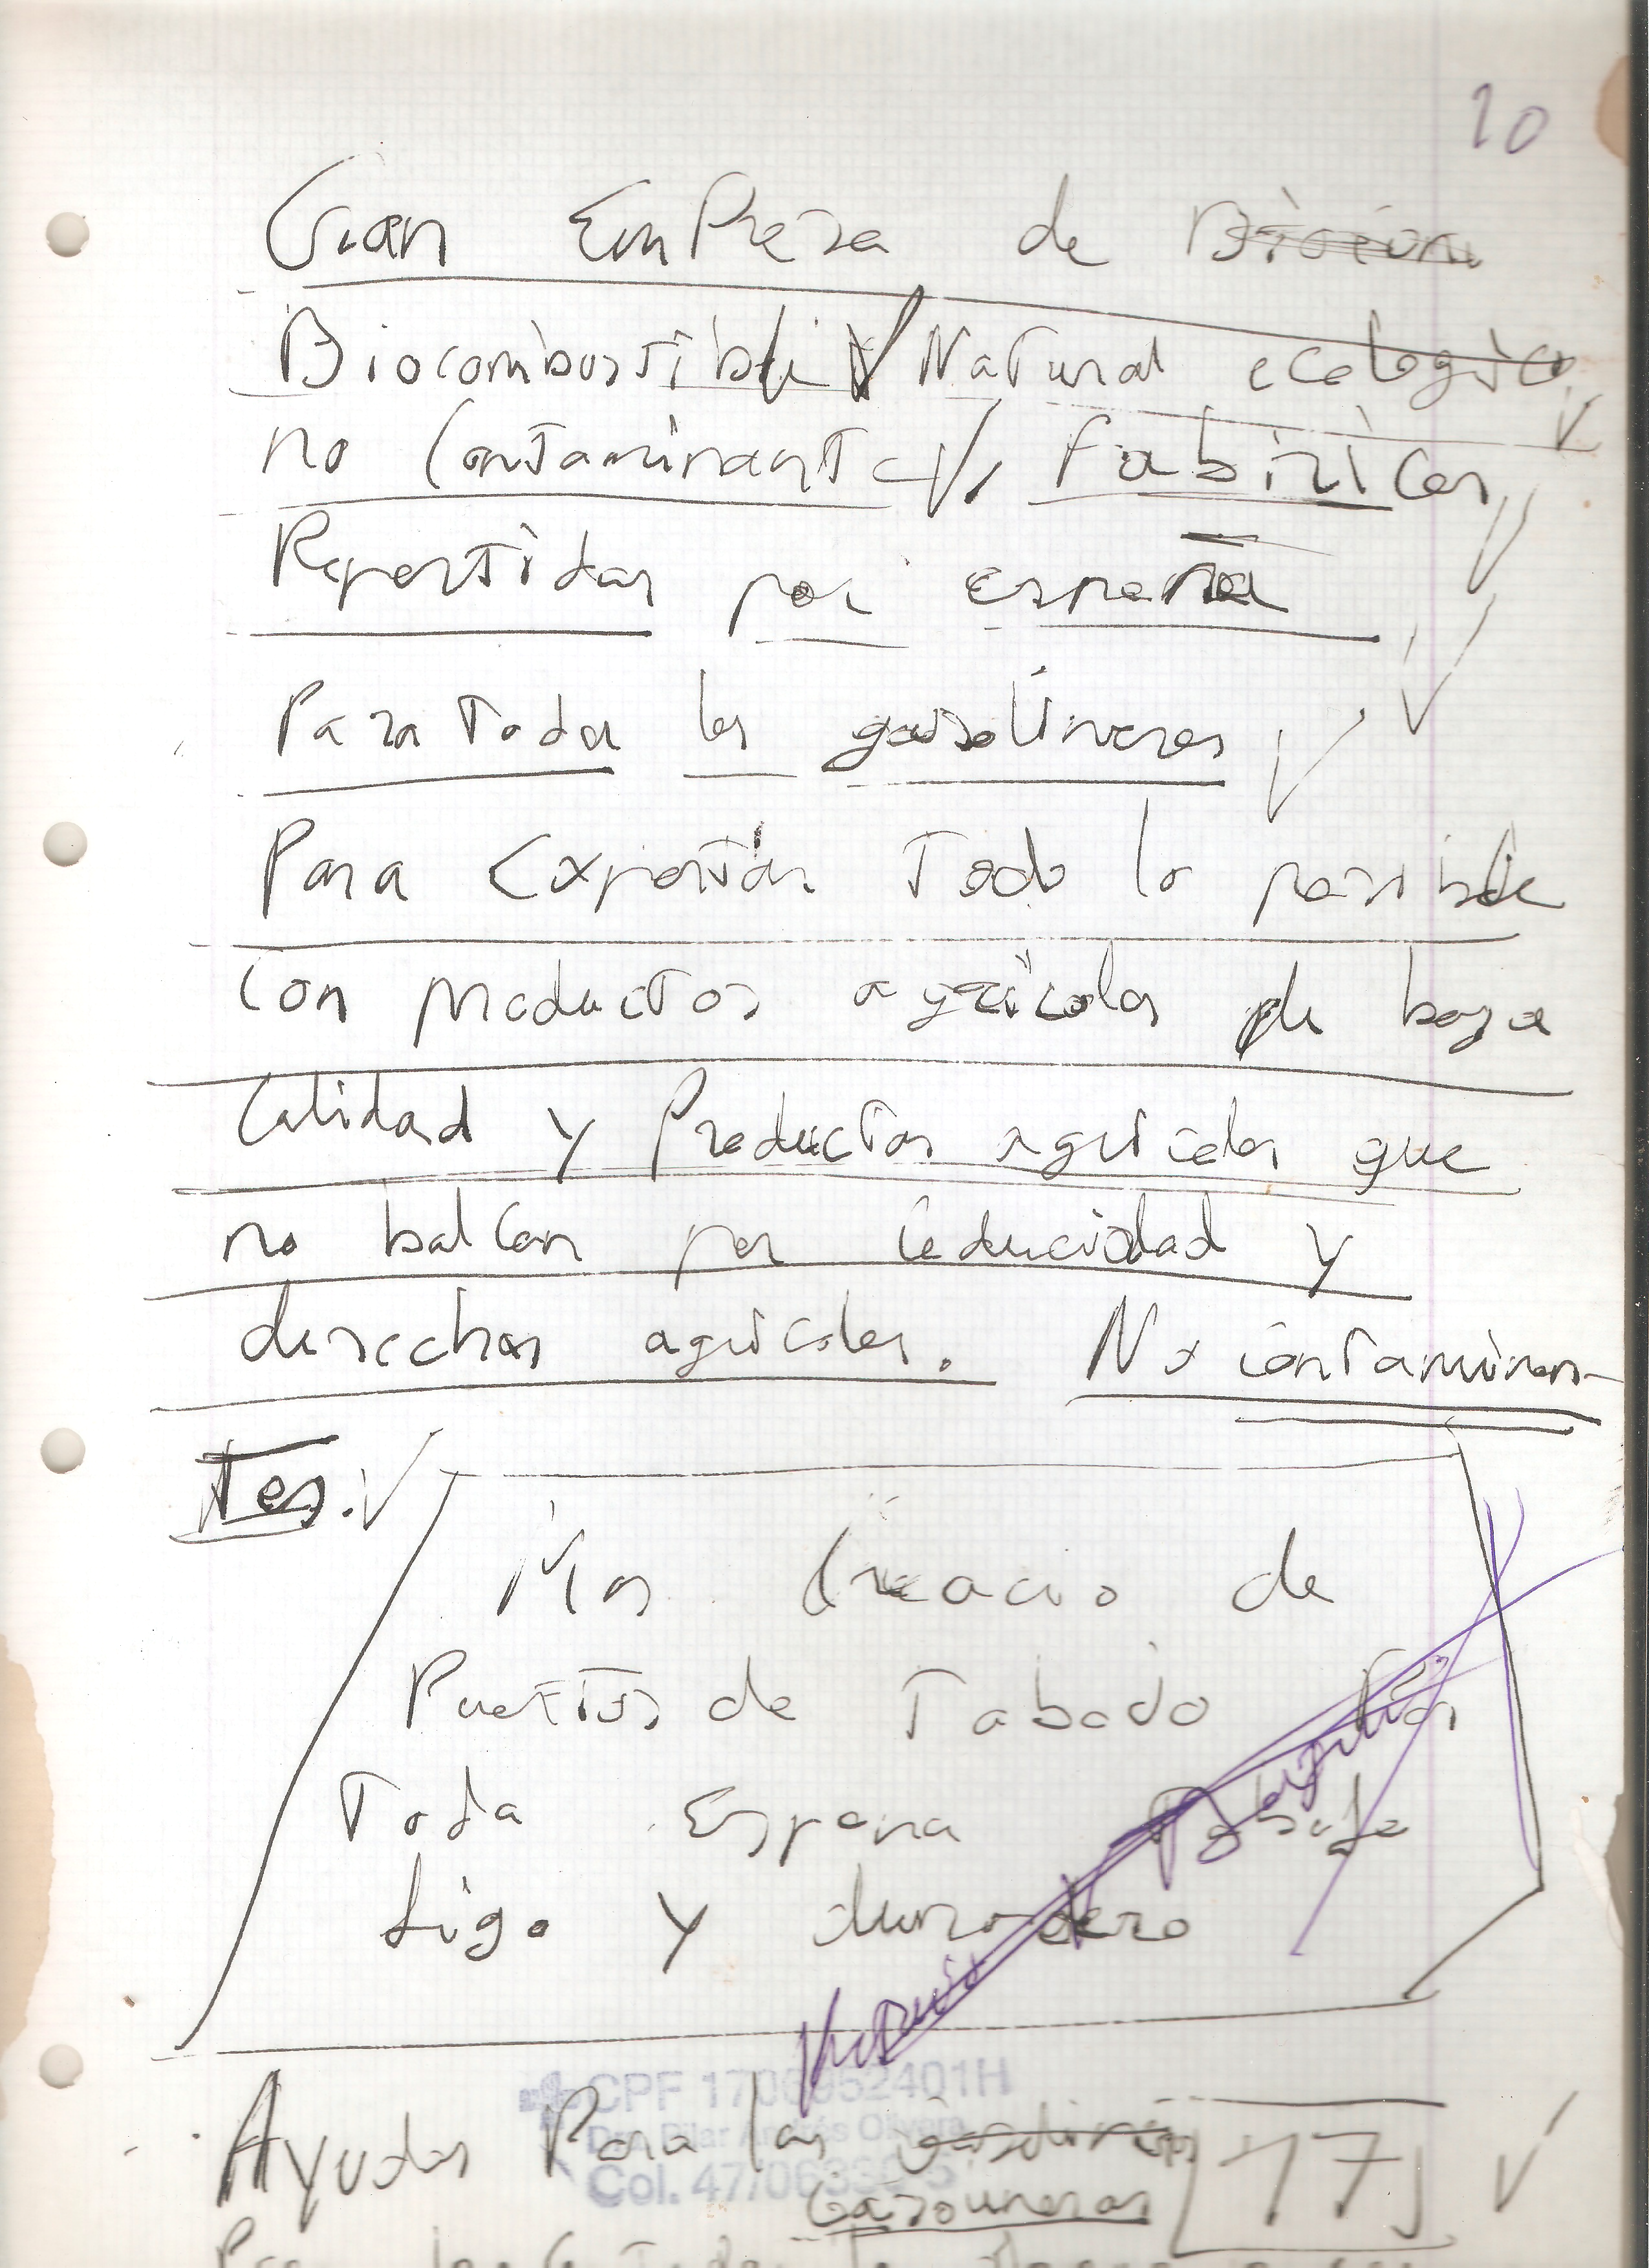 10
Gran EmPresa de
Biocombustible Natural ecologico
no Contaminante, Fabiricas
Repartidas por españa
Para Toda las gasolineras
Para Exportar Todo lo posible
con productos agricolas de baja
Calidad y Productos agricolas que
no balLan por caducidad y
desechos agricolas. No contaminan-
Tes.
Mas Creacio de
Puestos de Tabado Por
Toda España Tabajo
figo y duradero
CPF 1706952401H
Dra. Pilar Andrés Olivera
Col. 47/06
Ayudas Para las
Gasolineras 17